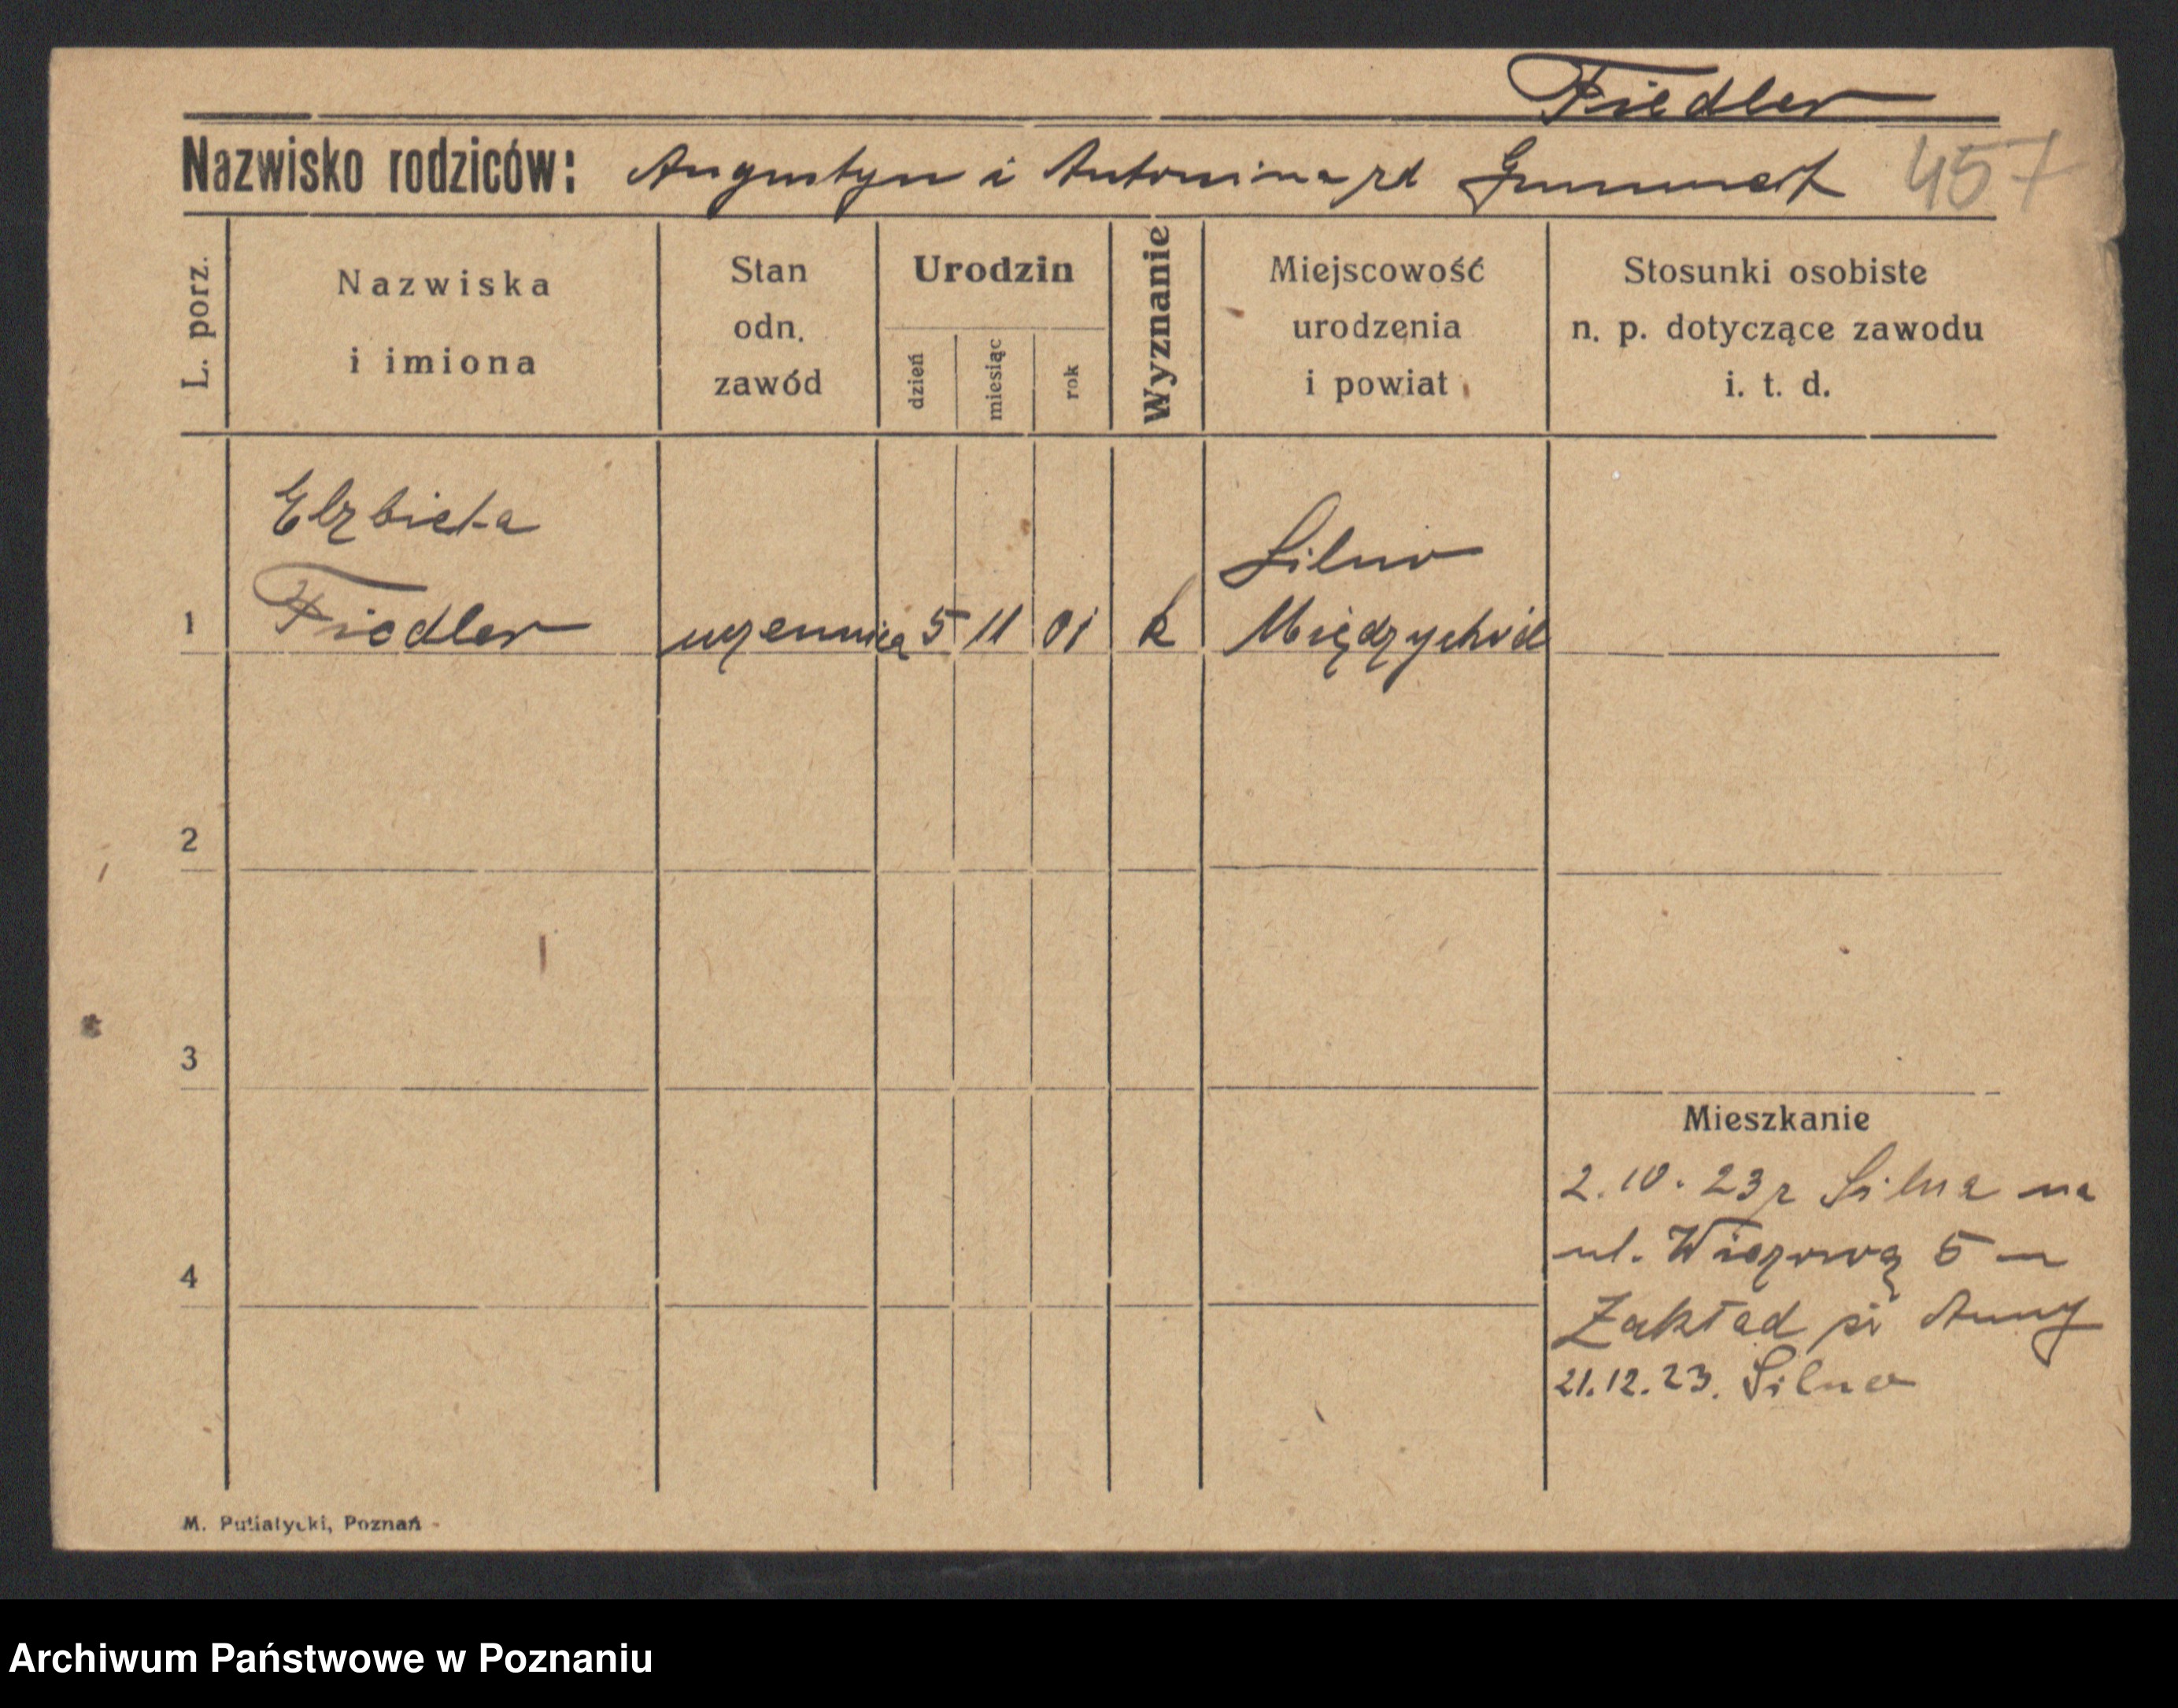 Fiedler
Nazwisko rodziców: Augustyn i Antonina zd 457
L. porz.
Nazwiska
i imiona
Stan
odn.
zawód
Urodzin
dzień
miesiąc
rok
Wyznanie
Miejscowość
urodzenia
i powiat
Stosunki osobiste
n. p. dotyczące zawodu
i. t. d.
Elzbieta Silno
1 Fiedler uczennica 5 11 01 k Międzychód
2
3
4
Mieszkanie
2.10.23 z Silna na
ul. Wiązową 5
Zakład św Anny
21.12.23. Silno
M. Putiatycki, Poznań
Archiwum Państwowe w Poznaniu